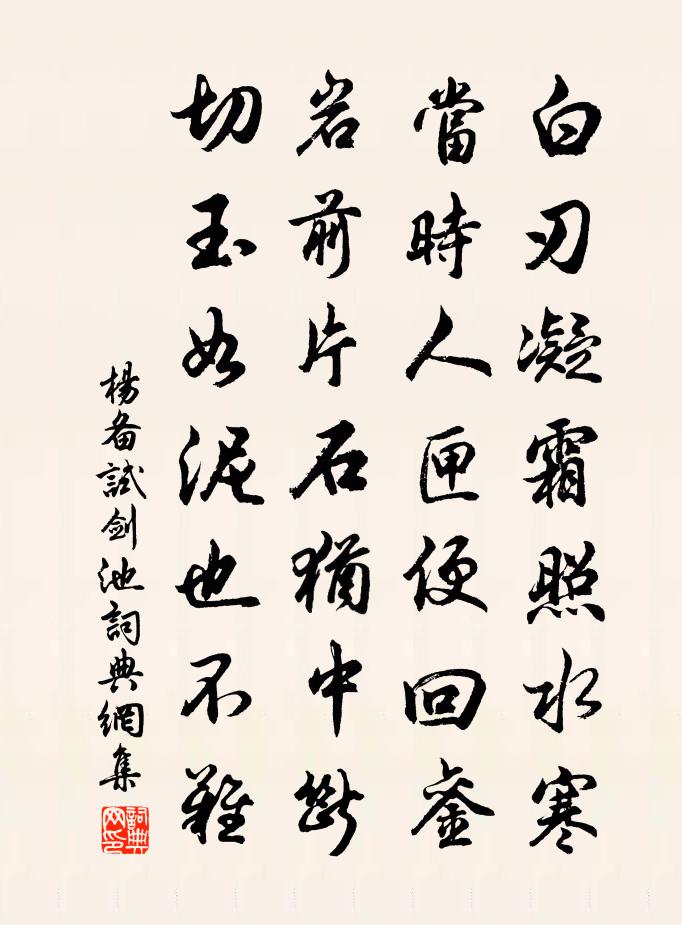 白刃凝霜照水寒
當時人匣便回銮
岩前片石猶中斷
切玉如泥也不難
楊备試劍池詞典網集
詞典网印